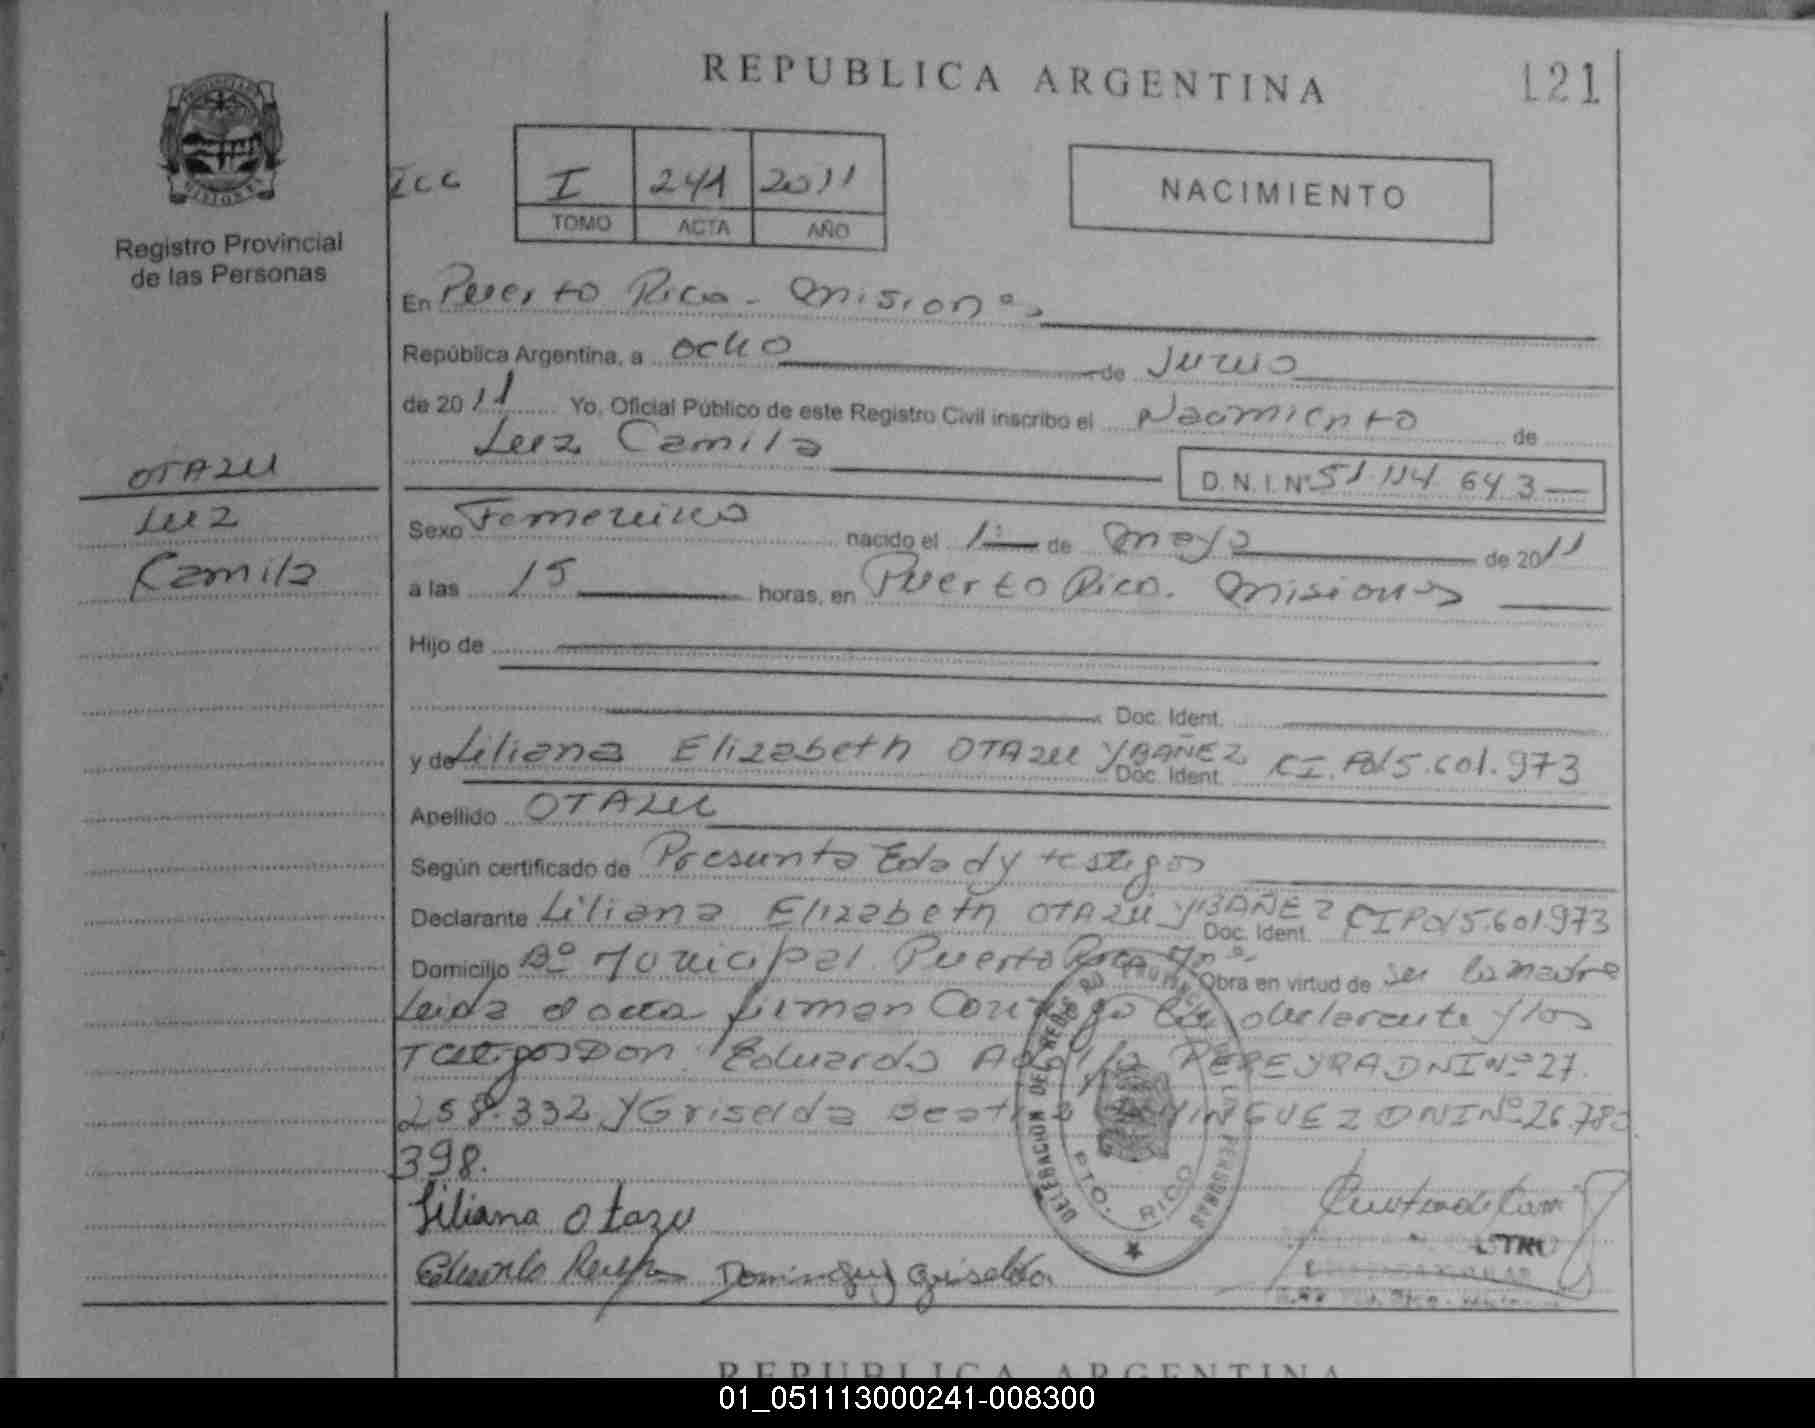 REPUBLICA ARGENTINA
121
Registro Provincial
de las Personas
I 241 2011
TOMO ACTA AÑO
NACIMIENTO
En Puerto Rico - Misiones
República Argentina, a ocho de Junio
de 2011 Yo, Oficial Público de este Registro Civil inscribo el Nacimiento de
Luz Camila
D.N.I.Nº 51.114 643
OTAZU
Luz
Camila
Sexo Femenino nacido el 1º de mayo de 2011
a las 15 horas, en Puerto Rico. Misiones
Hijo de
Doc. Ident.
y de Liliana Elizabeth OTAZU YBAÑEZ Doc. Ident. CI. Pa/5.601.973
Apellido OTAZU
Según certificado de Presunta Edad y testigos
Declarante Liliana Elizabeth OTAZU YBAÑEZ Doc. Ident. CI Pa/5.601.973
Domicilio Bº Municipal Puerto Rico Mnes. Obra en virtud de ser la madre
Leida el acta firman conmigo la declarante y los
Testigos Don Eduardo PEREYRA DNI Nº 27.
258.332 y Griselda Beatriz DOMINGUEZ DNI Nº 26.783
398.
Liliana Otazu
DELEGACION DEL REG. PROVINCIAL DE LAS PERSONAS
PTO. RICO
Dominguez Griselda
REPUBLICA ARGENTINA
01_051113000241-008300